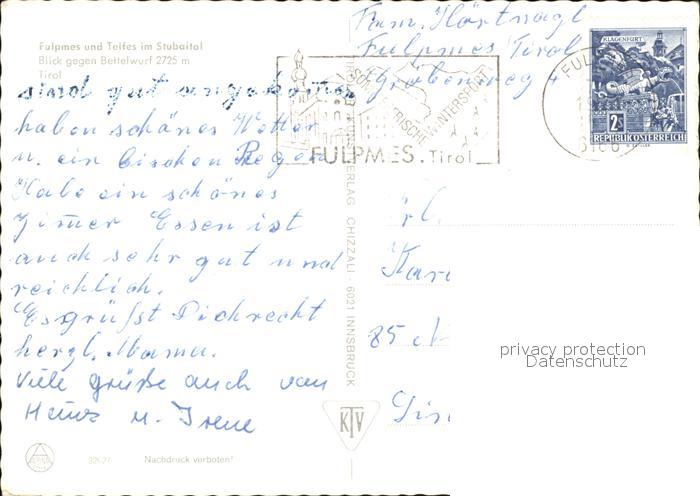 Fulpmes und Telfes im Stubaital
Blick gegen Bettelwurf 2725 m
Tirol
sind gut angekommen
haben schönes Wetter
u. ein bischen Regen
Habe ein schönes
Zimer Essen ist
auch sehr gut und
reichlich.
Es grüßt Dich recht
herzl. Mama.
Viele grüße auch von
Heinz u. Irene
Nachdruck verboten!
VERLAG CHIZZALI · 6021 INNSBRUCK
KTV
Fam. Hörtnagl
Fulpmes Tirol
Gröbenweg 4
SOMMERFRISCHE WINTERSPORT
FULPMES. Tirol
FUL
6166
KLAGENFURT
2S
REPUBLIK ÖSTERREICH
Frl.
Kar
85
privacy protection
Datenschutz